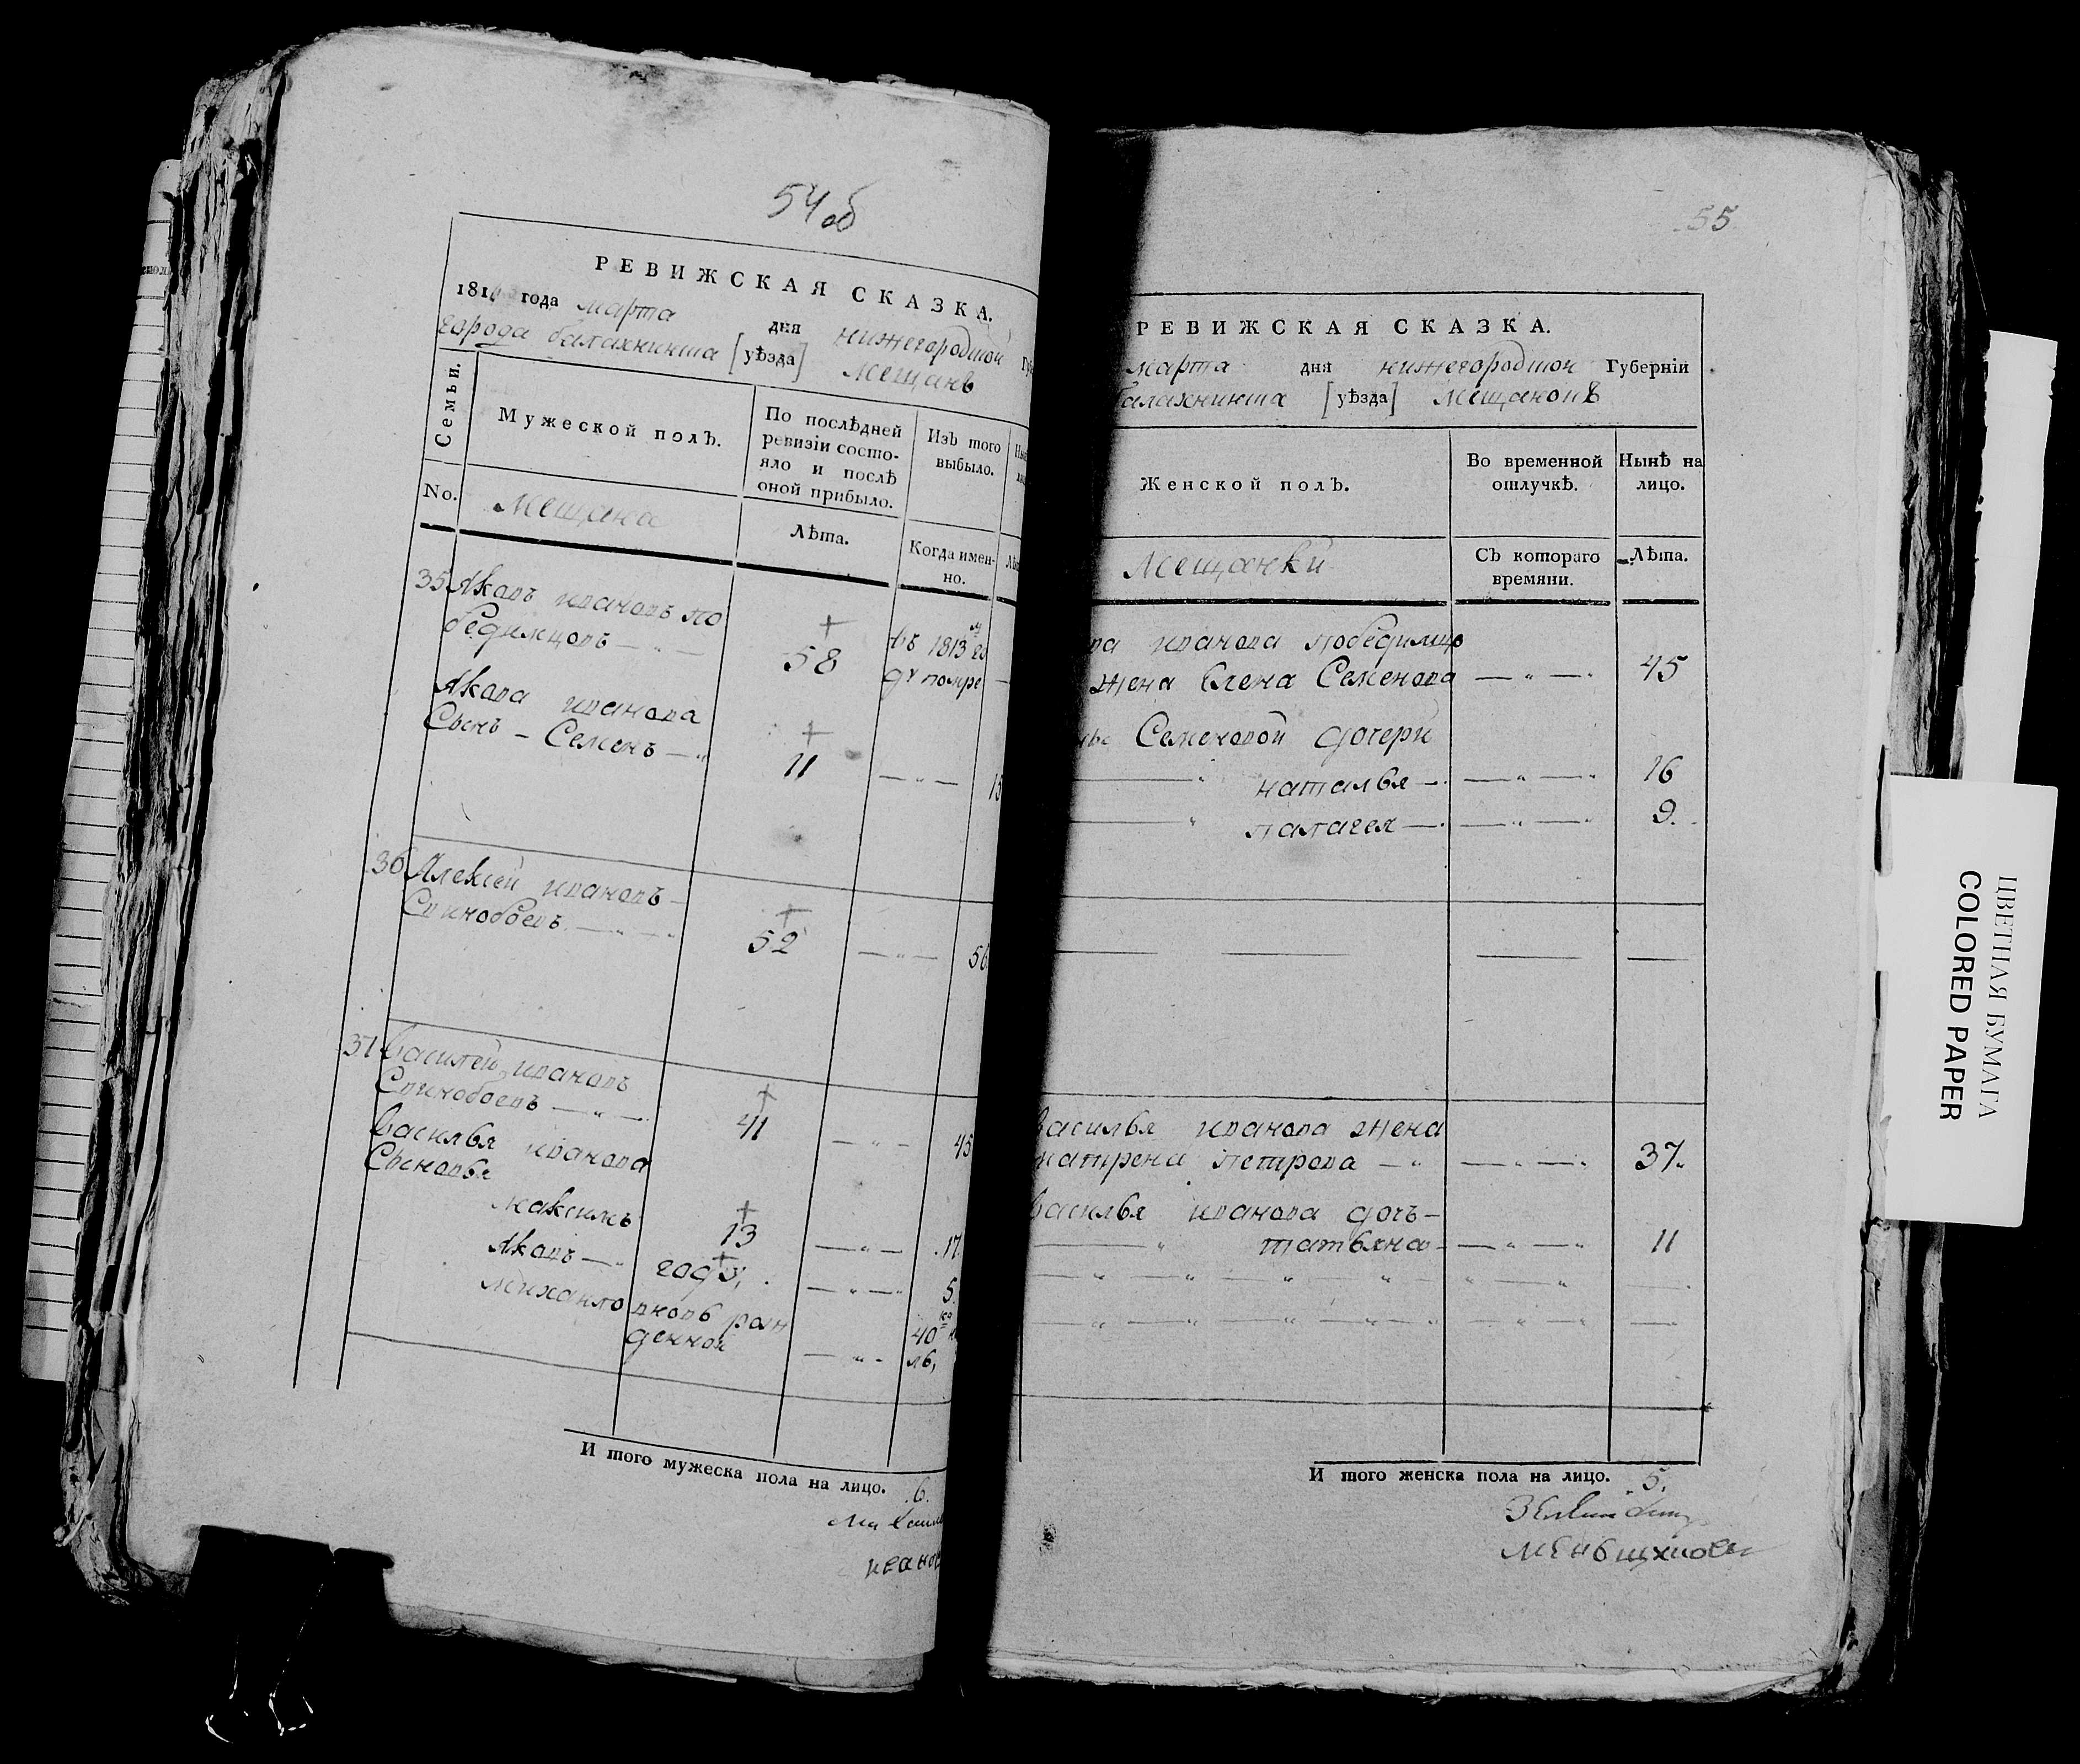 54об
РЕВИЖСКАЯ СКАЗКА.
181 года марта дня нижегородской
города балахнинша [уѣзда] мещанъ
Семьи.
Мужеской полъ.
По послѣдней
ревизіи состо-
яло и послѣ
оной прибыло.
Изъ того
выбыло.
No.
мещана
Лѣта.
Когда имен-
но.
35 Яковъ ивановъ по
бедимцовъ
58
въ 1813 м го
ду помре
Якова иванова
Сынъ - Семенъ
11
15
36 Алексей ивановъ
Свинобоевъ
52
56
37 василей ивановъ
Свинобоевъ
41
45
василья иванова
Сыновья
максимъ
13
17
Яковъ
годъ,
5
михайло
вновь рож
денной
40
ль,
И того мужеска пола на лицо. 6.
55
РЕВИЖСКАЯ СКАЗКА.
марта дня нижегородской Губерніи
балахнинша [уѣзда] мещанокъ
Женской полъ.
Во временной
отлучкѣ.
Нынѣ на
лицо.
мещанки
Съ котораго
времяни.
Лѣта.
иванова победимцо
жена Елена Семенова
45
Семеновой дочери
наталья
16
палагея
9.
василья иванова жена
матрена петрова
37.
василья иванова дочь
татьяна
11
И того женска пола на лицо. 5.
ЦВЕТНАЯ БУМАГА
COLORED PAPER